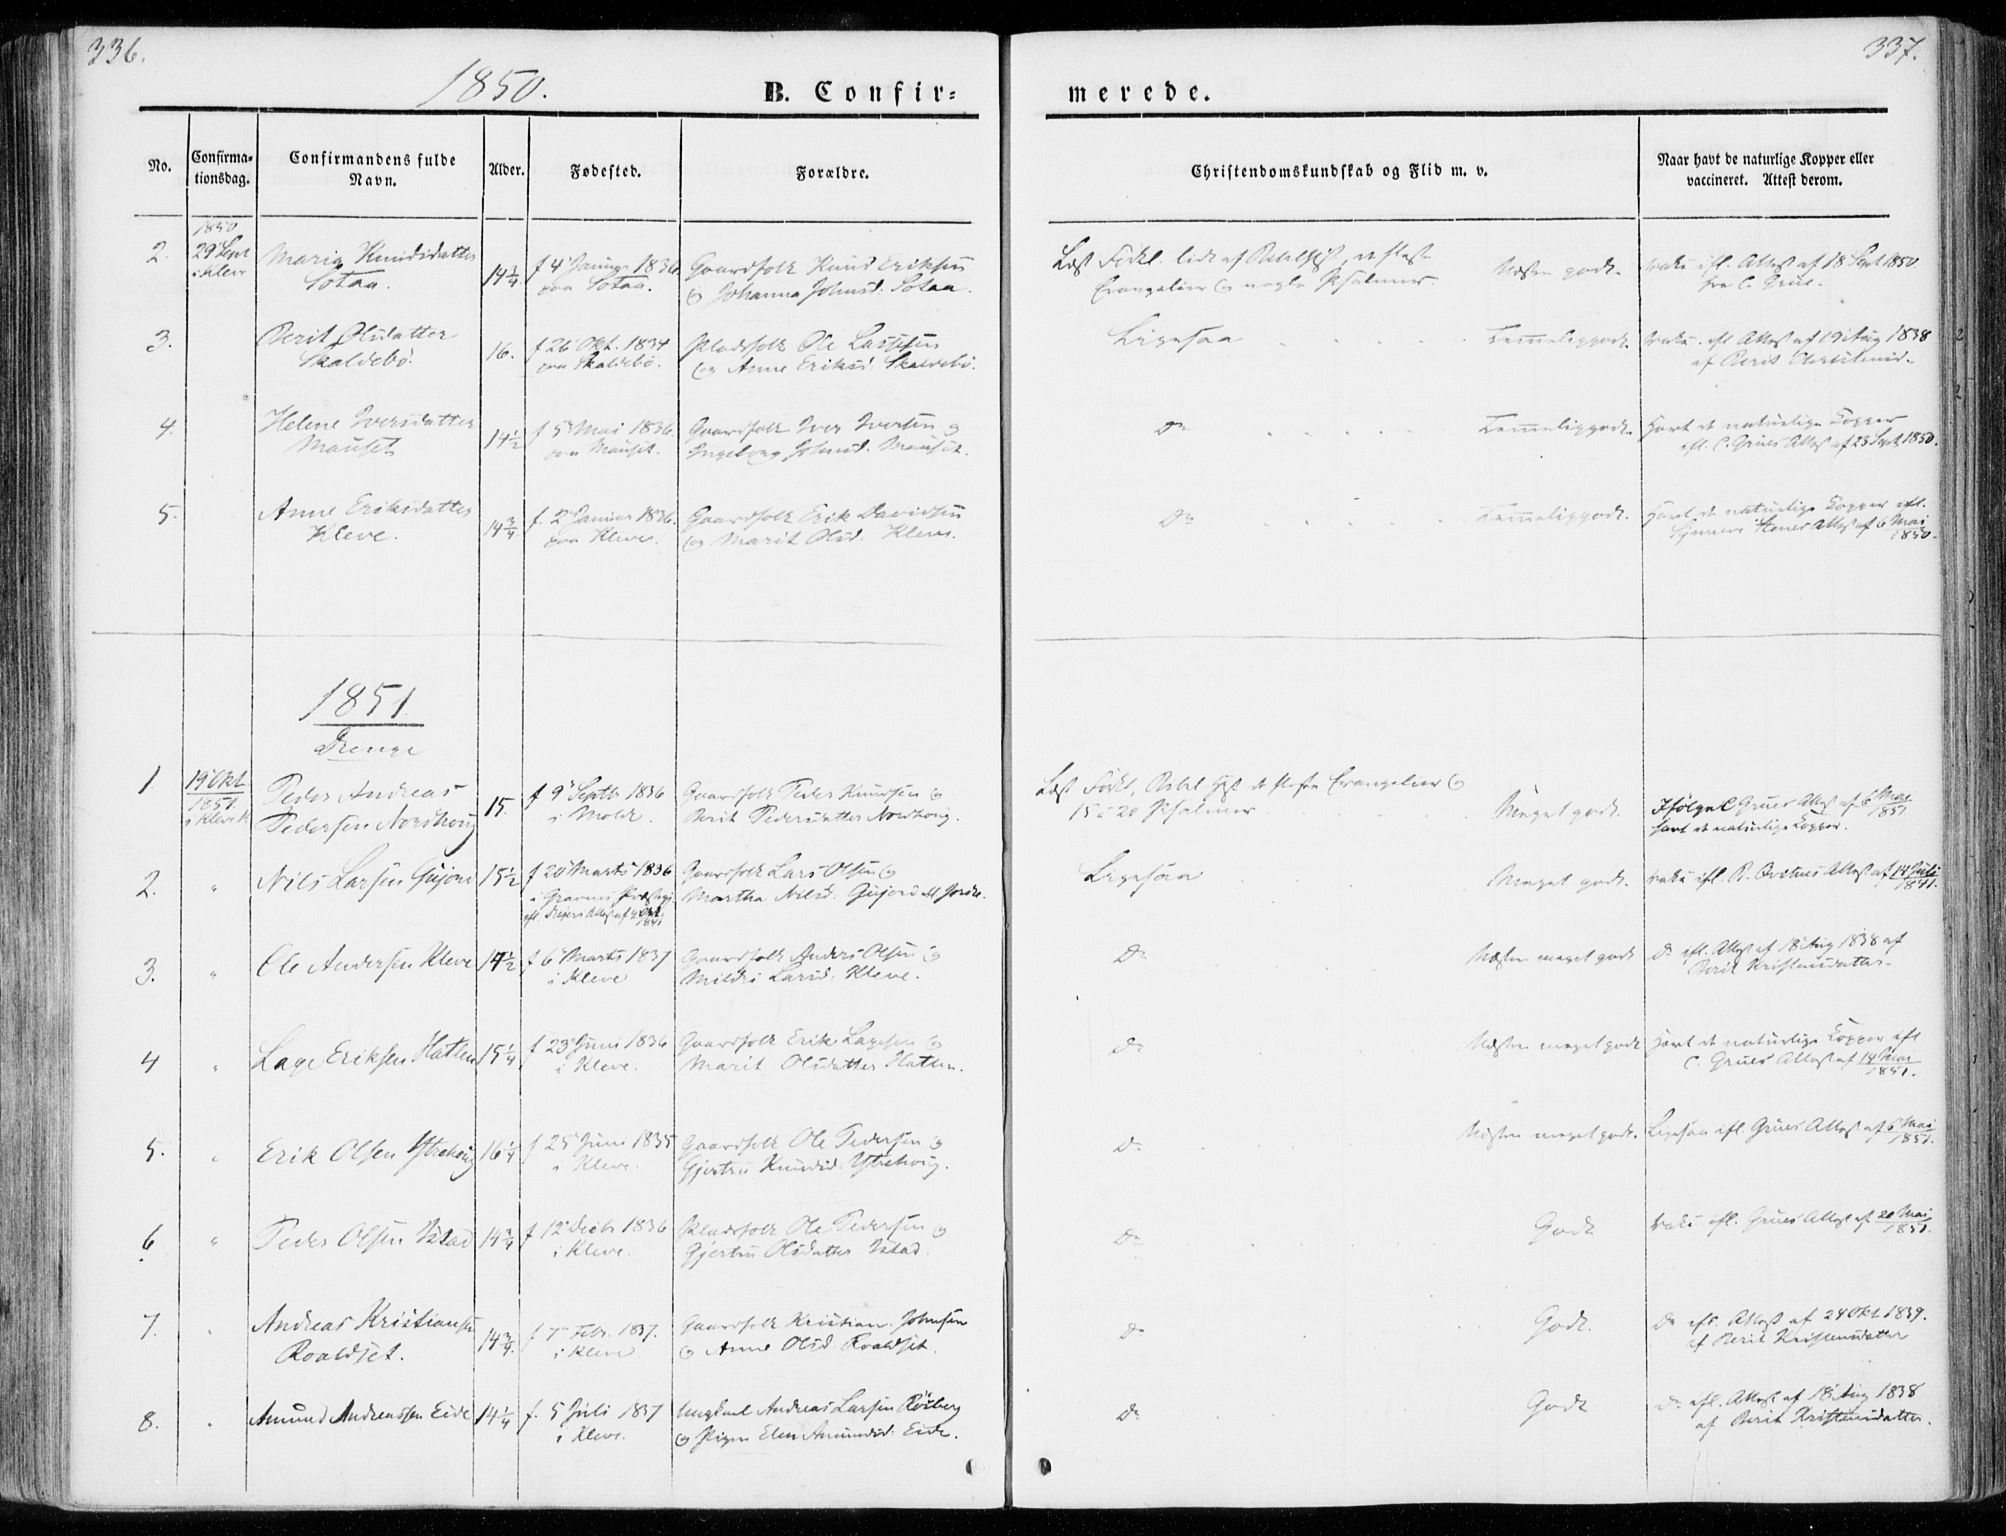 336.
1850.
B. Confir=
No.
Confirma=
tionsdag.
Confirmandens fulde
Navn.
Alder.
Fødested.
Forældre.
1850
2.
29 Sept
i Kleve
Maria Knudsdatter
Sotaa.
14 3/4
f 4 Januar 1836
paa Sotaa.
Gaardfolk Knud Eriksen
og Johanna Johnsd. Sotaa.
3.
Berit Olsdatter
Skaldebö.
16.
f 26 Okt. 1834
paa Skaldebö.
Pladsfolk Ole Larssen
og Anne Eriksd. Skaldebö.
4.
Helene Iversdatter
Mauset
14 1/2
f 5 Mai 1836.
paa Mauset.
Gaardfolk Iver Iversen og
Ingeborg Johnsd. Mauset.
5.
Anne Eriksdatter
Kleve.
14 3/4
f. 2 Januar 1836.
paa Kleve.
Gaardfolk Erik Davidsen
og Marit Olsd. Kleve.
1851
Drenge
1
19 Okt
1851.
i Kleve K
Peder Andreas
Pedersen Nordhoug
15.
f 9 Septbr 1836
i Molde.
Gaardfolk Peder Knudsen og
Berit Pedersdatter Nordhoug.
2.
"
Nils Larsen Gujord
15 1/2
f 20 Marts 1836
i Gravens Præstegj.
efl. Attest af 4 Okt
1841
Gaardfolk Lars Olsen og
Martha Nilsd. Gujord
3.
"
Ole Andersen Kleve
14 1/2
f 6 Marts 1837
i Kleve
Gaardfolk Anders Olsen og
Mildri Larsd. Kleve.
4
"
Lage Eriksen Hatlen
15 1/4
f 23 Juni 1836
i Kleve.
Gaardfolk Erik Lagesen og
Marit Olsdatter Hatlen.
5.
"
Erik Olsen Ytrehoug
16 1/4
f 25 Juni 1835
i Kleve.
Gaardfolk Ole Pedersen og
Gjertru Knudsd. Ytrehoug.
6
"
Peder Olsen Istad
14 3/4
f 12 Decbr 1836
i Kleve.
Pladsfolk Ole Pedersen og
Gjertru Olsdatter Istad.
7.
"
Andreas Kristiansen
Roaldset.
14 3/4.
f 7 Febr. 1837.
i Kleve
Gaardfolk Kristian Johnsen
og Anne Olsd. Roaldset.
8.
"
Amund Andreassen Eide
14 1/4
f. 5 Juli 1837
i Kleve.
Ungkarl Andreas Larsen Röiberg
og Pigen Eli Amundsd. Eide.
337.
merede.
Christendomskundskab og Flid m. v.
Naar havt de naturlige Kopper eller
vaccineret. Attest derom.
Læst Forkl. lidt af Bibelhist, de fleste
Evangelier og nogle Psalmer.
Næsten godt.
Vaks. ifl. Attest af 18 Sept 1850
fra C. Grue.
Ligesaa
Temmelig godt.
Vaks. efl. Attest af 19 Aug 1838
af Berit
Do
Temmelig godt.
Havt de naturlige Kopper
efl. C. Grues Attest af 23 Sept 1850.
Do
Temmelig godt.
Havt de naturlige Kopper efl.
Attest af 6 Mai
1850.
Læst Forkl, Bibelhist de fleste Evangelier og
15 à 20 Psalmer
Meget godt.
Ifölge C Grues Attest af 6 Mai
1851
havt de naturlige Kopper.
Ligesaa
Meget godt.
Vaks ifl. Attest af 14 Juli
1841.
Do
Næsten meget godt
Do efl. Attest af 18 Aug 1838 af
Berit Kristensdatter.
Do
Næsten meget godt
Havt de naturlige Kopper efl
C. Grues Attest af 14 Mai
1851.
Do
Næsten meget godt.
Ligesaa ifl. Grues Attest af 6 Mai
1851.
Do
Godt
Vaks ifl. Grues Attest af 20 Mai
1851.
Do
Godt.
Do efl. Attest af 24 Okt 1839.
af Berit Kristensdatter
Do
Godt
Do efl. Attest af 18 Aug 1838
af Berit Kristensdatter.